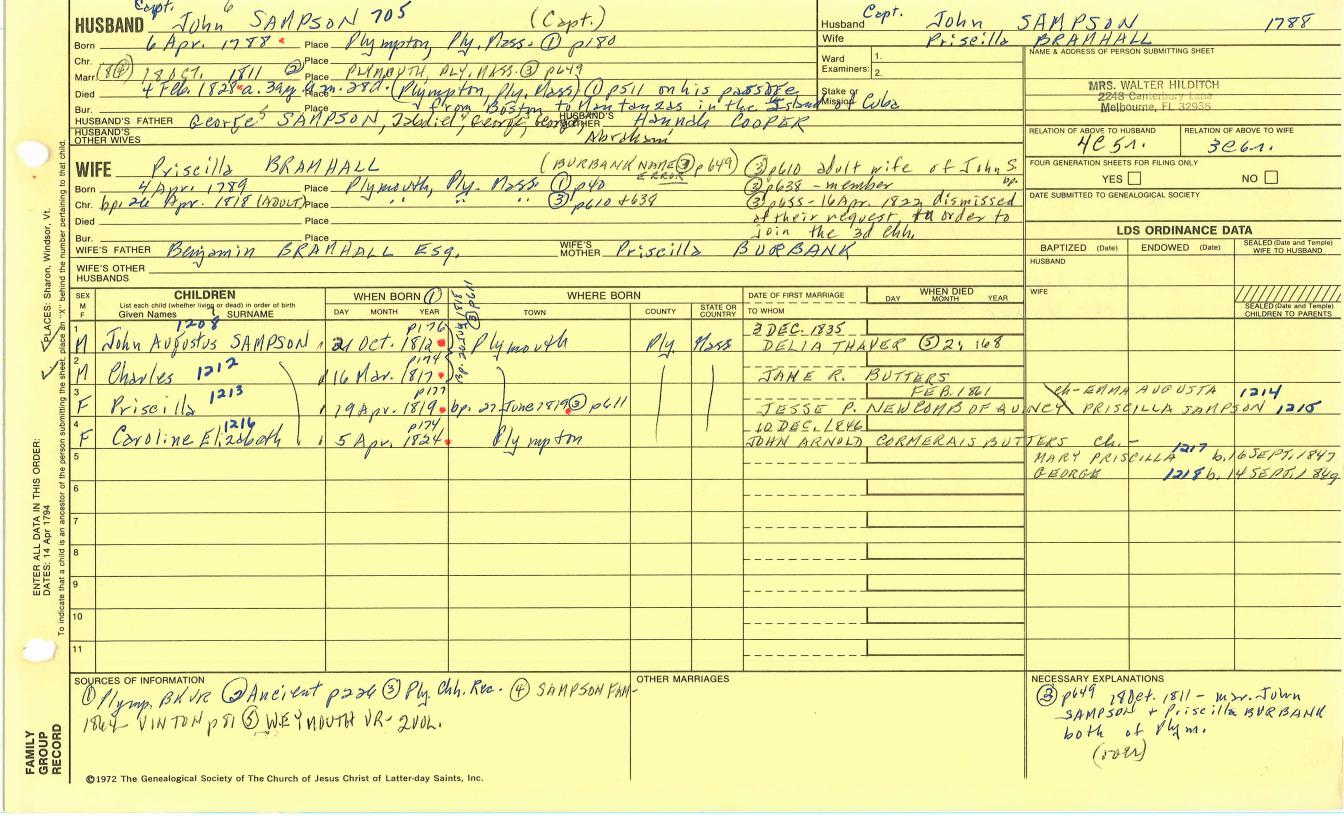 Capt. 6
HUSBAND John SAMPSON 705 (Capt.)
Born 6 Apr. 1788 Place Plympton, Ply. Mass. ① p180
Chr. Place
Marr. 18 OCT. 1811 ② Place PLYMOUTH, PLY. MASS. ③ p649
Died 4 Feb. 1828 a. 39y 9m. 28d. Place (Plympton, Ply, Mass) ① p511 on his passage
Bur. Place from Boston to Mantanzas in the Island of Cuba
HUSBAND'S FATHER George SAMPSON, HUSBAND'S MOTHER Hannah COOPER
HUSBAND'S OTHER WIVES Abraham
WIFE Priscilla BRAMHALL (BURBANK NAME ③ p649) ERROR
Born 4 Apr. 1789 Place Plymouth, Ply. Mass ① p40
Chr. bp. 26 Apr. 1818 (ADULT) Place " " " ③ p610 + 638
Died Place
Bur. Place
③ p610 adult wife of John S. bp.
③ p638 - member
③ p655 - 16 Apr. 1822 dismissed
at their request, to order to
join the 3d Chh.
WIFE'S FATHER Benjamin BRAMHALL Esq. WIFE'S MOTHER Priscilla BURBANK
WIFE'S OTHER HUSBANDS
Husband Capt. John SAMPSON 1788
Wife Priscilla BRAMHALL
Ward Examiners: 1.
2.
Stake or Mission
NAME & ADDRESS OF PERSON SUBMITTING SHEET
MRS. WALTER HILDITCH
2248 Canterbury Lane
Melbourne, FL 32935
RELATION OF ABOVE TO HUSBAND RELATION OF ABOVE TO WIFE
4C5r. 3C6r.
FOUR GENERATION SHEETS FOR FILING ONLY
YES NO
DATE SUBMITTED TO GENEALOGICAL SOCIETY
LDS ORDINANCE DATA
BAPTIZED (Date) ENDOWED (Date) SEALED (Date and Temple) WIFE TO HUSBAND
HUSBAND
WIFE
SEALED (Date and Temple) CHILDREN TO PARENTS
SEX M F CHILDREN WHEN BORN ① WHERE BORN DATE OF FIRST MARRIAGE WHEN DIED
List each child (whether living or dead) in order of birth
Given Names SURNAME DAY MONTH YEAR TOWN COUNTY STATE OR COUNTRY TO WHOM DAY MONTH YEAR
1208 p176 3 DEC. 1835
1 M John Augustus SAMPSON 21 Oct. 1812 Plymouth Ply. Mass DELIA THAYER ⑤ 2; 168
1212 p174
2 M Charles 16 Mar. 1817 JANE R. BUTTERS
1213 p177 FEB. 1861 ch- EMMA AUGUSTA 1214
3 F Priscilla 19 Apr. 1819 bp. 27 June 1819 ③ p611 JESSE P. NEWCOMB OF QUINCY PRISCILLA SAMPSON 1215
1216 p174 10 DEC. 1846
4 F Caroline Elizabeth 5 Apr. 1824 Plympton JOHN ARNOLD CORMERAIS BUTTERS ch. -
5 MARY PRISCILLA 1217 b. 16 SEPT. 1847
GEORGE 1218 b. 14 SEPT. 1849
6
7
8
9
10
11
SOURCES OF INFORMATION
① Plymp. BK VR ② Ancient p226 ③ Ply. Chh. Rec. ④ SAMPSON FAM-
1864 - VINTON p81 ⑤ WEYMOUTH VR - 2VOL.
OTHER MARRIAGES
NECESSARY EXPLANATIONS
③ p649 18 Oct. 1811 - mar. John
SAMPSON + Priscilla BURBANK
both of Plym.
(over)
©1972 The Genealogical Society of The Church of Jesus Christ of Latter-day Saints, Inc.
FAMILY GROUP RECORD
ENTER ALL DATA IN THIS ORDER:
DATES: 14 Apr 1794
PLACES: Sharon, Windsor, Vt.
To indicate that a child is an ancestor of the person submitting the sheet, place an "X" behind the number pertaining to that child.